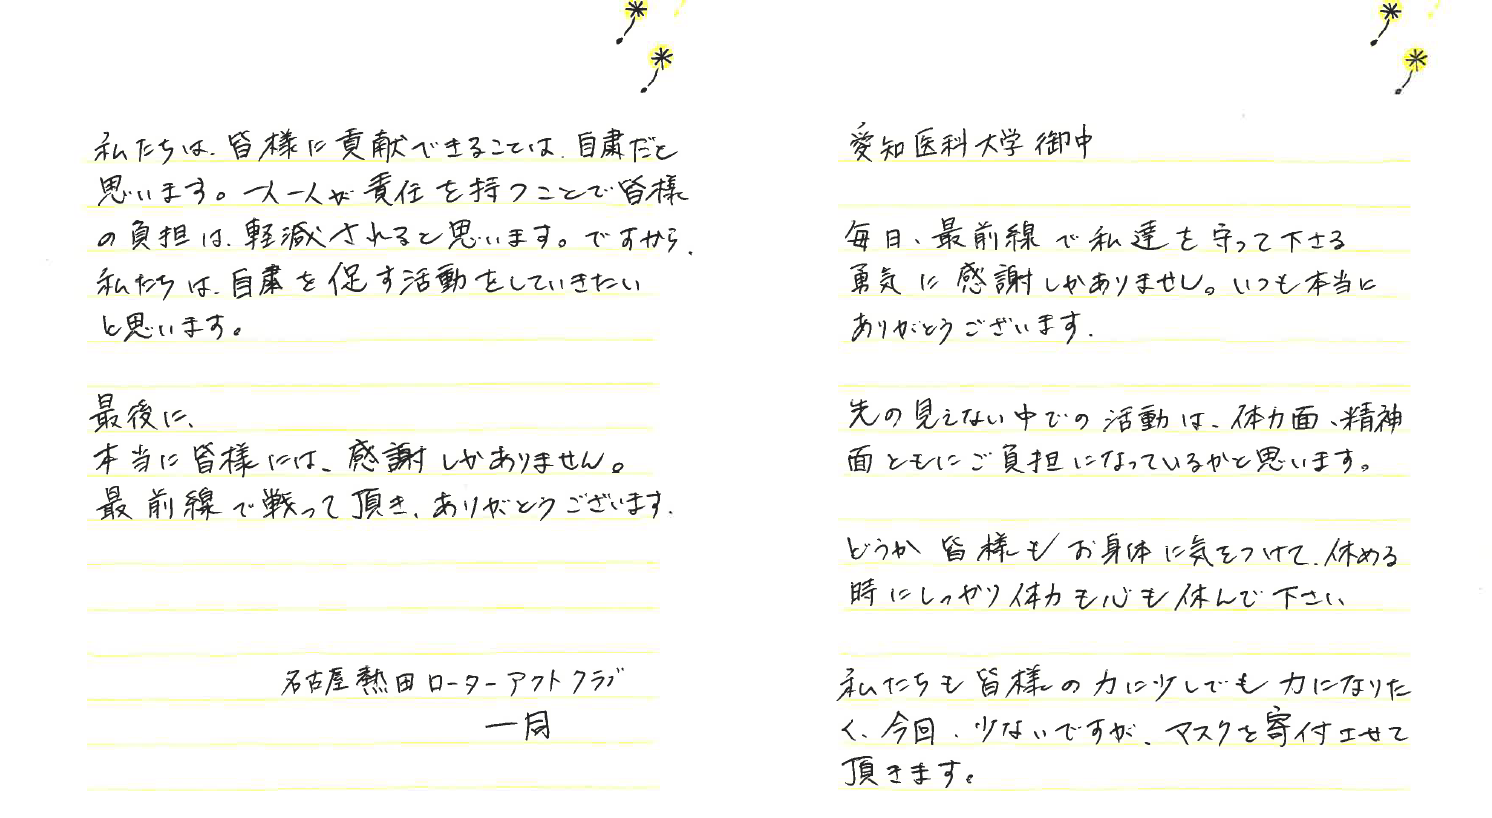 愛知医科大学御中
毎日、最前線で私達を守って下さる
勇気に感謝しかありません。いつも本当に
ありがとうございます.
先の見えない中での活動は、体力面、精神
面ともにご負担になっているかと思います。
どうか皆様もお身体に気をつけて、休める
時にしっかり体力も心も休んで下さい
私たちも皆様の力に少しでも力になりた
く、今回、少ないですが、マスクを寄付させて
頂きます。
私たちは、皆様に貢献できることは、自粛だと
思います。一人一人が責任を持つことで皆様
の負担は、軽減されると思います。ですから、
私たちは、自粛を促す活動をしていきたい
と思います。
最後に、
本当に皆様には、感謝しかありません。
最前線で戦って頂き、ありがとうございます.
名古屋熱田ローターアクトクラブ
一同